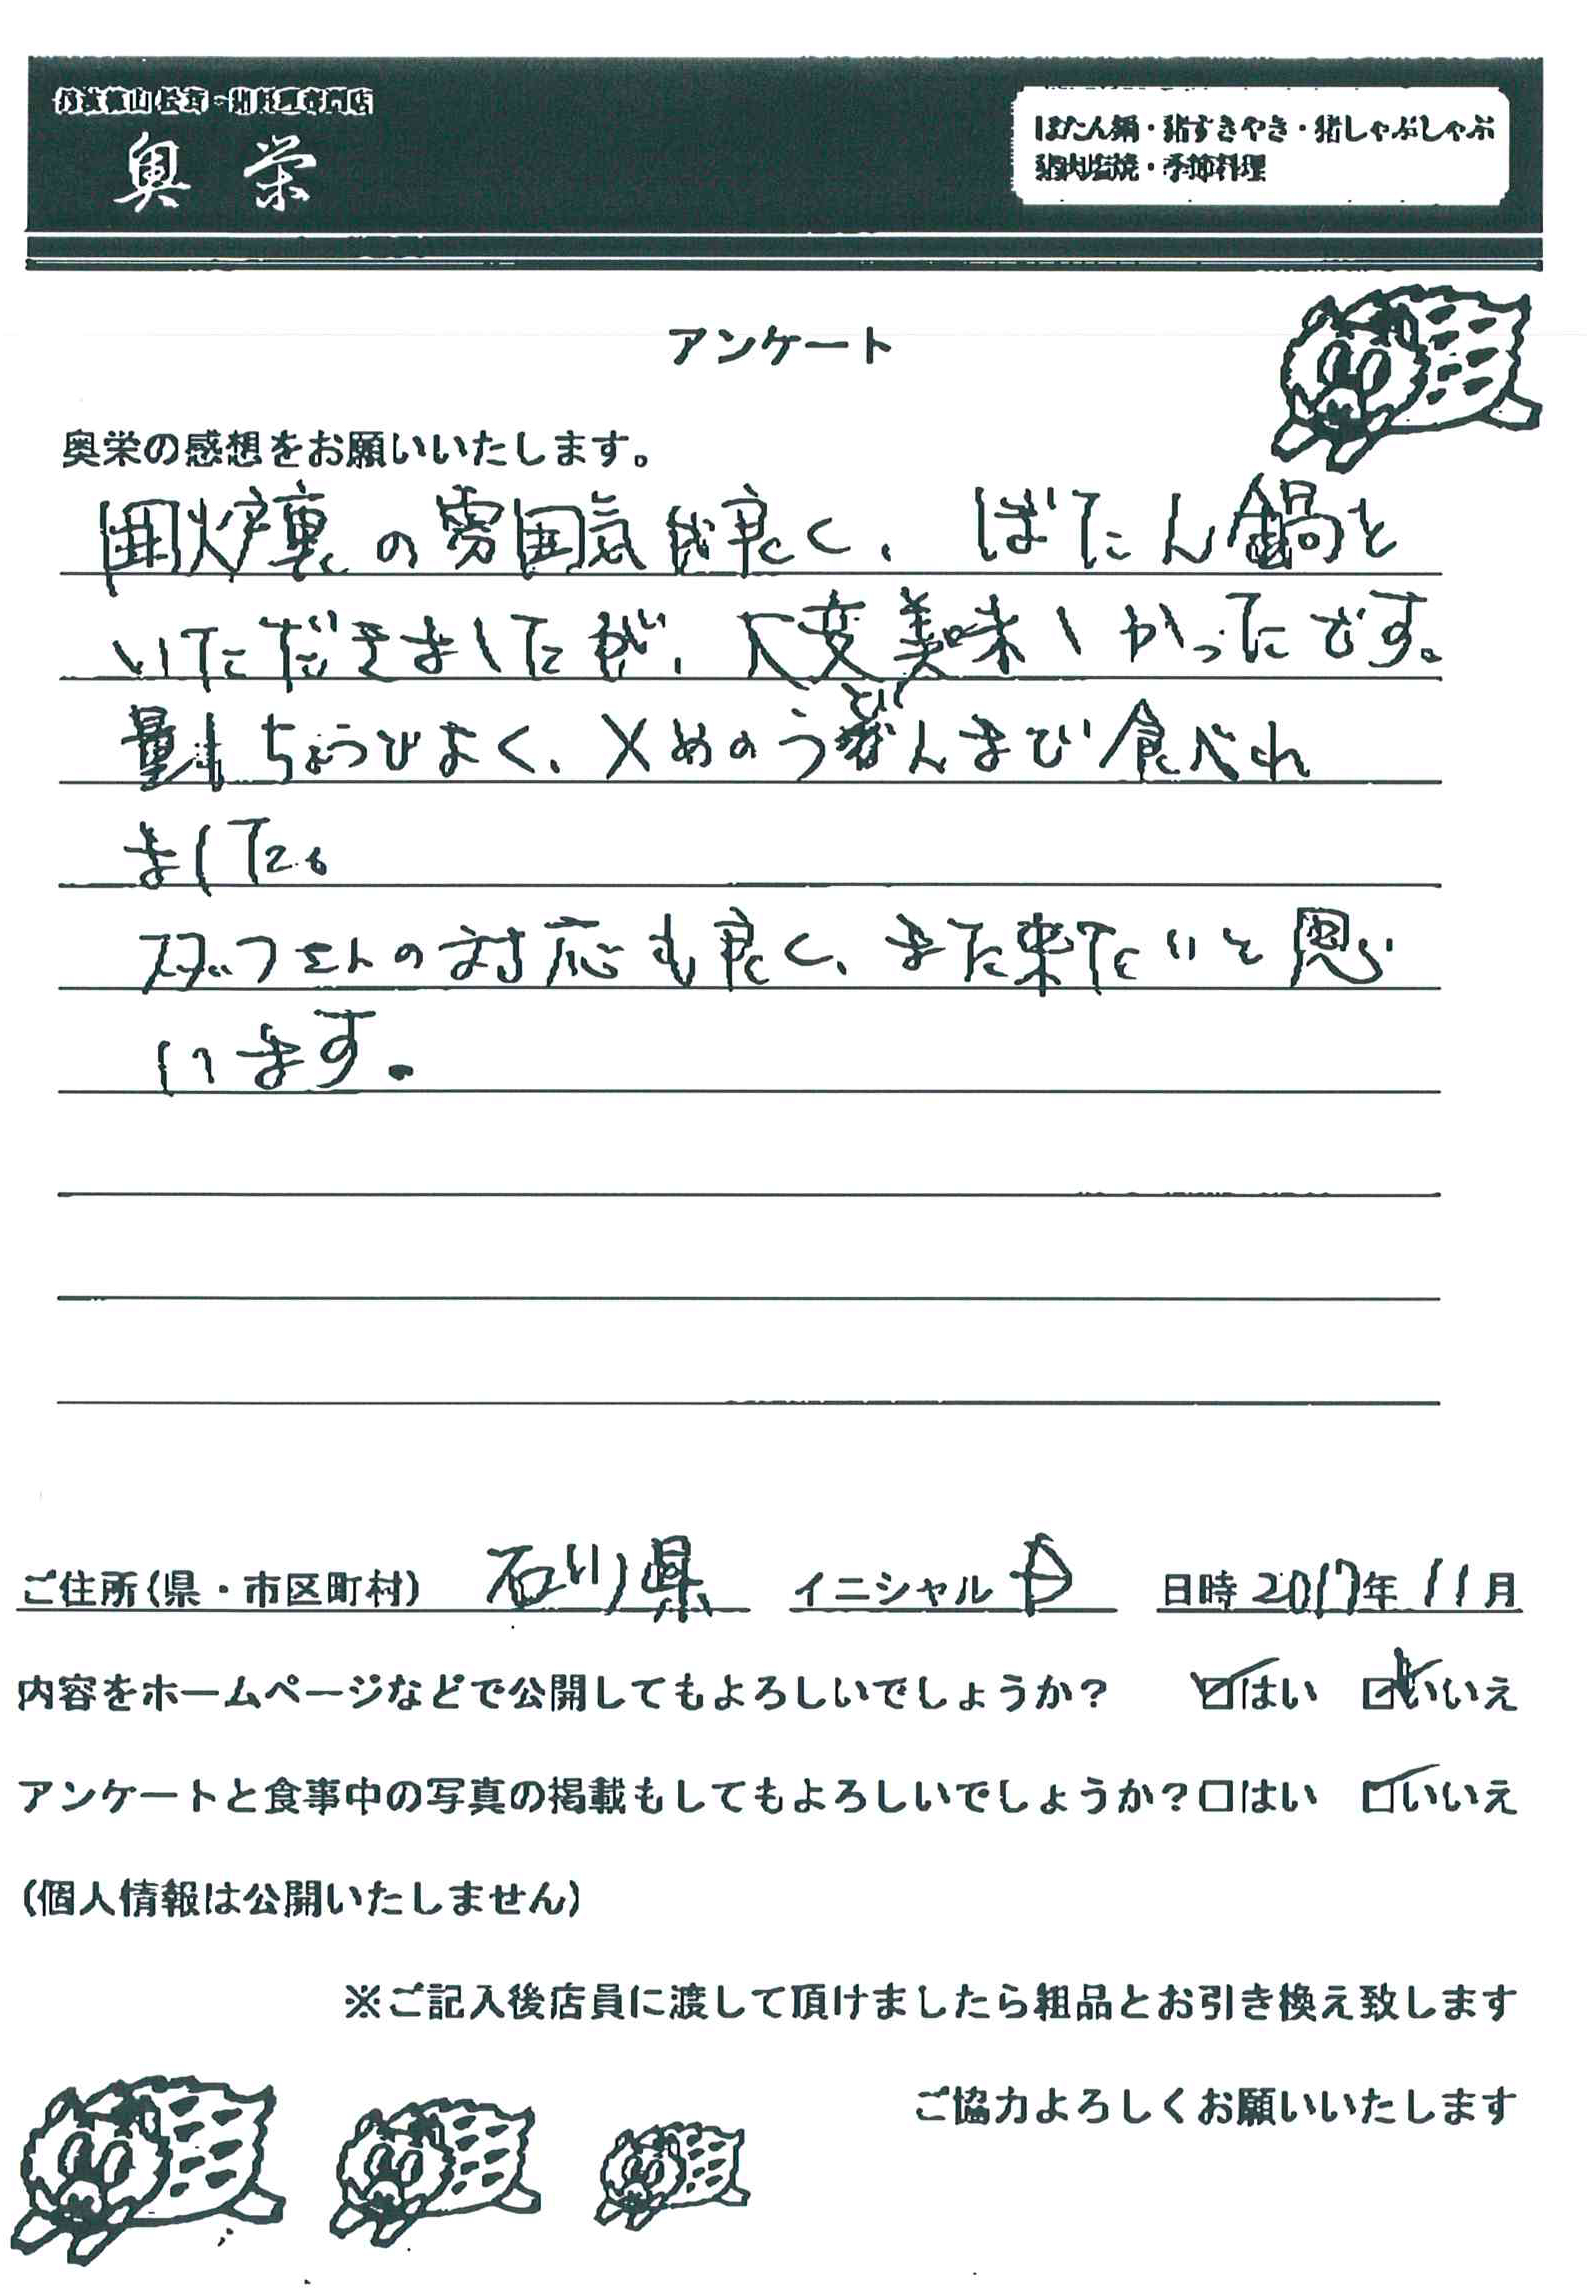 丹波篠山 松茸・猪料理専門店
奥栄
ぼたん鍋・猪すきやき・猪しゃぶしゃぶ
猪肉塩焼・季節料理
アンケート
奥栄の感想をお願いいたします。
囲炉裏の雰囲気が良く、ぼたん鍋を
いただきましたが、大変美味しかったです。
量もちょうどよく、〆めのうどんまで食べれ
ました。
スタッフさんの対応も良く、また来たいと思
います。
ご住所(県・市区町村) 石川県 イニシャル 日時 2017年 11月
内容をホームページなどで公開してもよろしいでしょうか? はい いいえ
アンケートと食事中の写真の掲載もしてもよろしいでしょうか? はい いいえ
(個人情報は公開いたしません)
※ご記入後店員に渡して頂けましたら粗品とお引き換え致します
ご協力よろしくお願いいたします